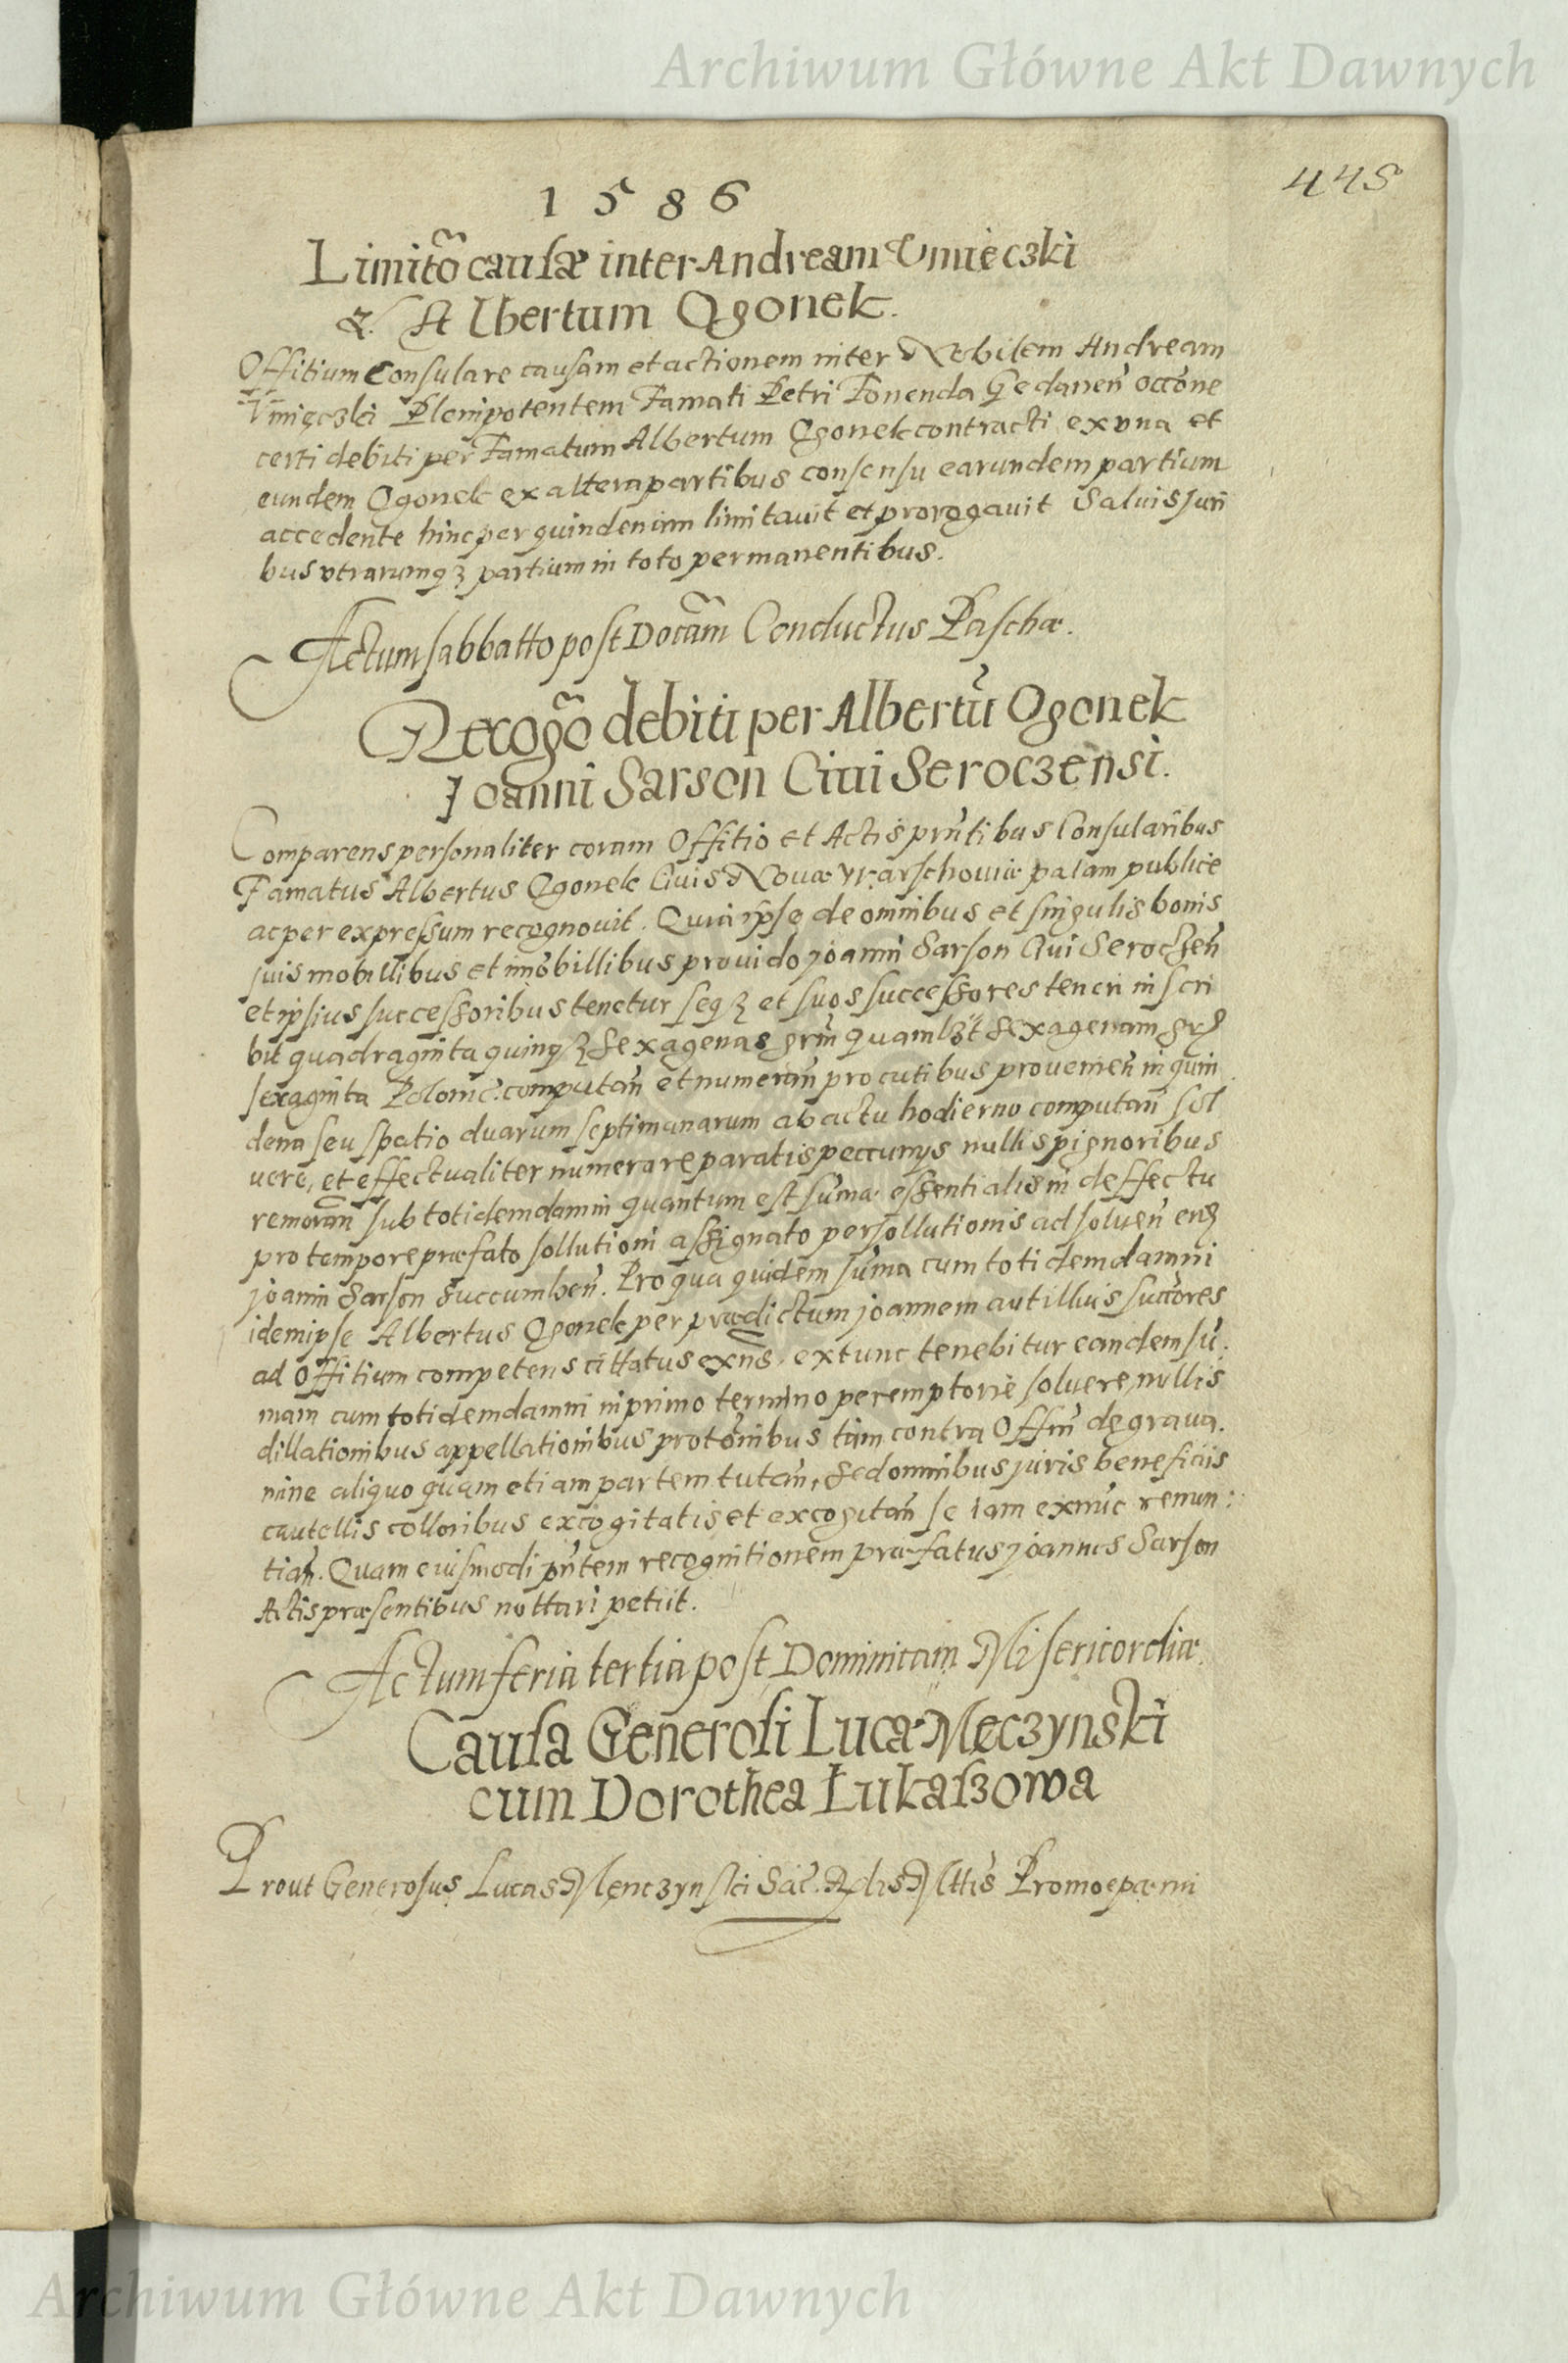 Archiwum Główne Akt Dawnych
445
1586
Limitõ causæ inter Andream Vmieczki
& Albertum Ogonek.
Offitium Consulare causam et actionem inter Nobilem Andream
Vmięczki Plenipotentem Famati Petri Fonenda Gedanen̄ occõne
certi debiti per Famatum Albertum Ogonek contracti ex vna et
eundem Ogonek ex altera partibus consensu earundem partium
accedente hinc per quindenam limitauit et prorogauit Saluis juri
bus vtrarumqꝫ partium in toto permanentibus.
Actum sabbatto post Docãm Conductus Paschæ.
Recogõ debiti per Albertũ Ogonek
Joanni Sarson Ciui Seroczensi.
Comparens personaliter coram Offitio et Actis prñtibus Consularibus
Famatus Albertus Ogonek Ciuis Nouæ Warschouiæ palam publice
ac per expressum recognouit. Quia ipse de omnibus et singulis bonis
suis mobillibus et imobillibus prouido joanni Sarson Ciui Seroczen̄
et ipsius successoribus tenetur seqꝫ et suos successores teneri inscri
bit quadraginta quinqꝫ sexagenas grm̄ quamlꝫt sexagenam
sexaginta Polonic. computan̄ et numeran̄ pro cutibus prouenien̄ in quin
dena seu spatio duarum septimanarum ab actu hodierno computan̄ sol
uere, et effectualiter numerare paratis peccunys nullis pignoribus
remoran̄ sub totidem damni quantum est suma essentialis in deffectu
pro tempore præfato sollutioni assignato persollutionis ad soluen̄
joanni Sarson succumben̄. Pro qua quidem suma cum totidem damni
idem ipse Albertus Ogonek per prædictum joannem aut illius succores
ad Offitium competens cittatus exn̄s, extunc tenebitur eandem su.
mam cum totidem damni in primo termino peremptorie soluere, nullis
dillationibus appellationibus protõnibus tam contra Offm̄ de graua.
mine aliquo quam etiam partem tutan̄, sed omnibus juris beneficiis
cautellis colloribus excogitatis et excogitan̄ se iam exnunc renun:
tian̄. Quam eiusmodi pn̄tem recognitionem præfatus joannes Sarson
Actis præsentibus nottari petiit.
Actum feria tertia post Dominicam Misericordiæ.
Causa Generosi Lucæ Męczynski
cum Dorothea Łukaszowa
Prout Generosus Lucas Męnczynski Sac. Mttis
Archiwum Główne Akt Dawnych